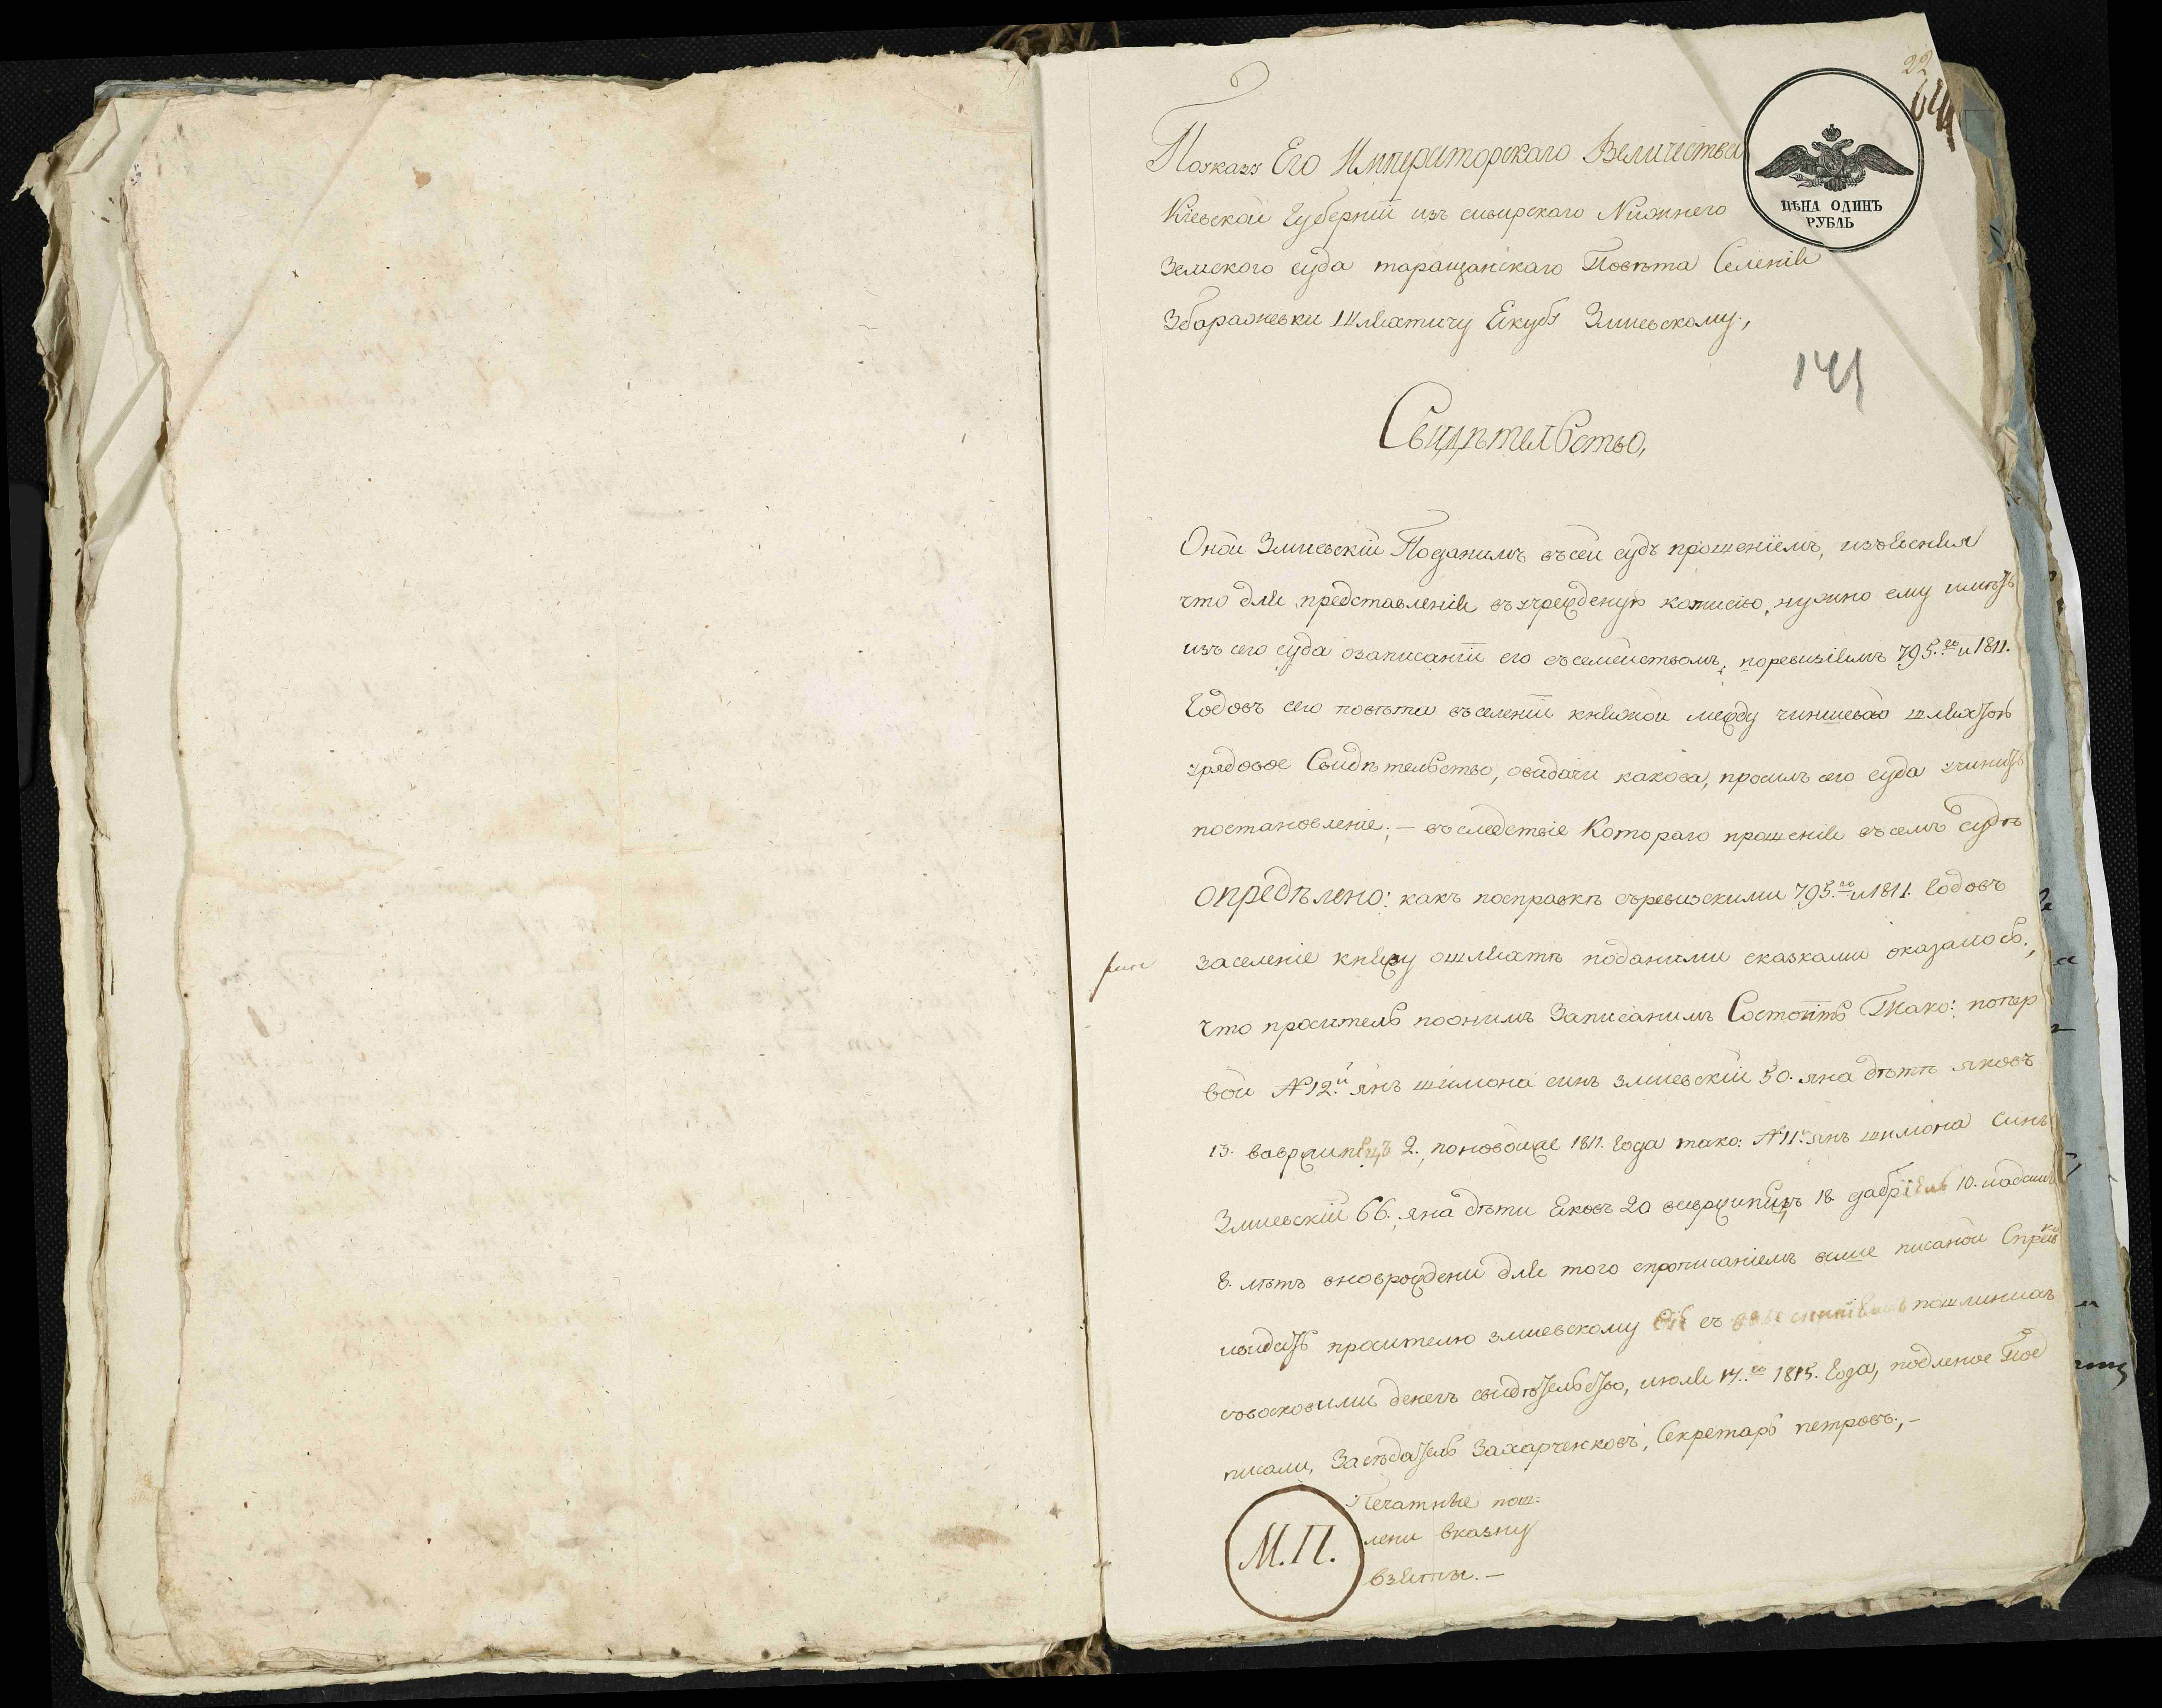 22
64
ЦѢНА ОДИНЪ
РУБЛЬ
Поуказу Его Императорскаго Величества
Кіевской Губерніи изъ сквирскаго Нижнего
Земского суда таращанскаго Повѣта Селенія
Збаражевки Шляхтичу Якубу Змиевскому,
141
Свидѣтельство,
Оной Змиевскій Поданимъ въсей судъ прошеніемъ, изъясняя
что для представленія въучрежденую комисію, нужно ему имѣть
изъ сего суда озаписаніи его съсемействомъ, поревизіямъ 795.го и 1811.
Годовъ сего повѣта въселеніи княжой между чиншевою шляхтою
урядовое Свидѣтельство, овидачи какова, просилъ сего суда учинить
постановленіе; — въследствіе Котораго прошенія въсемъ судѣ
опредѣлено: какъ посправкѣ съревизскими 795.го и 1811. Годовъ
заселеніе княжу ошляхтѣ поданими сказками оказалось,
что проситель пооним Записанимъ Состоитъ Тако: попер
вой №12.й янъ шимона синъ змиевскій 50. яна дѣти яковъ
13. вавринецъ 2. поновойже 1811. Года тако: №11.й янъ шимона синъ
Змиевскій 66. яна дѣти яковъ 20 вавринецъ 18. габріель 10.
8. лѣтъ вноврождени для того спрописаніемъ више писаной Справки
видать просителю змиевскому съ пошлинихъ
денегъ свидѣтельство, июля 14.го 1815. Года, подленое Под
писали, Засѣдатель Захарченковъ, Секретарь петровъ, —
Печатные пош-
лени вказну
взяты. —
М.П.